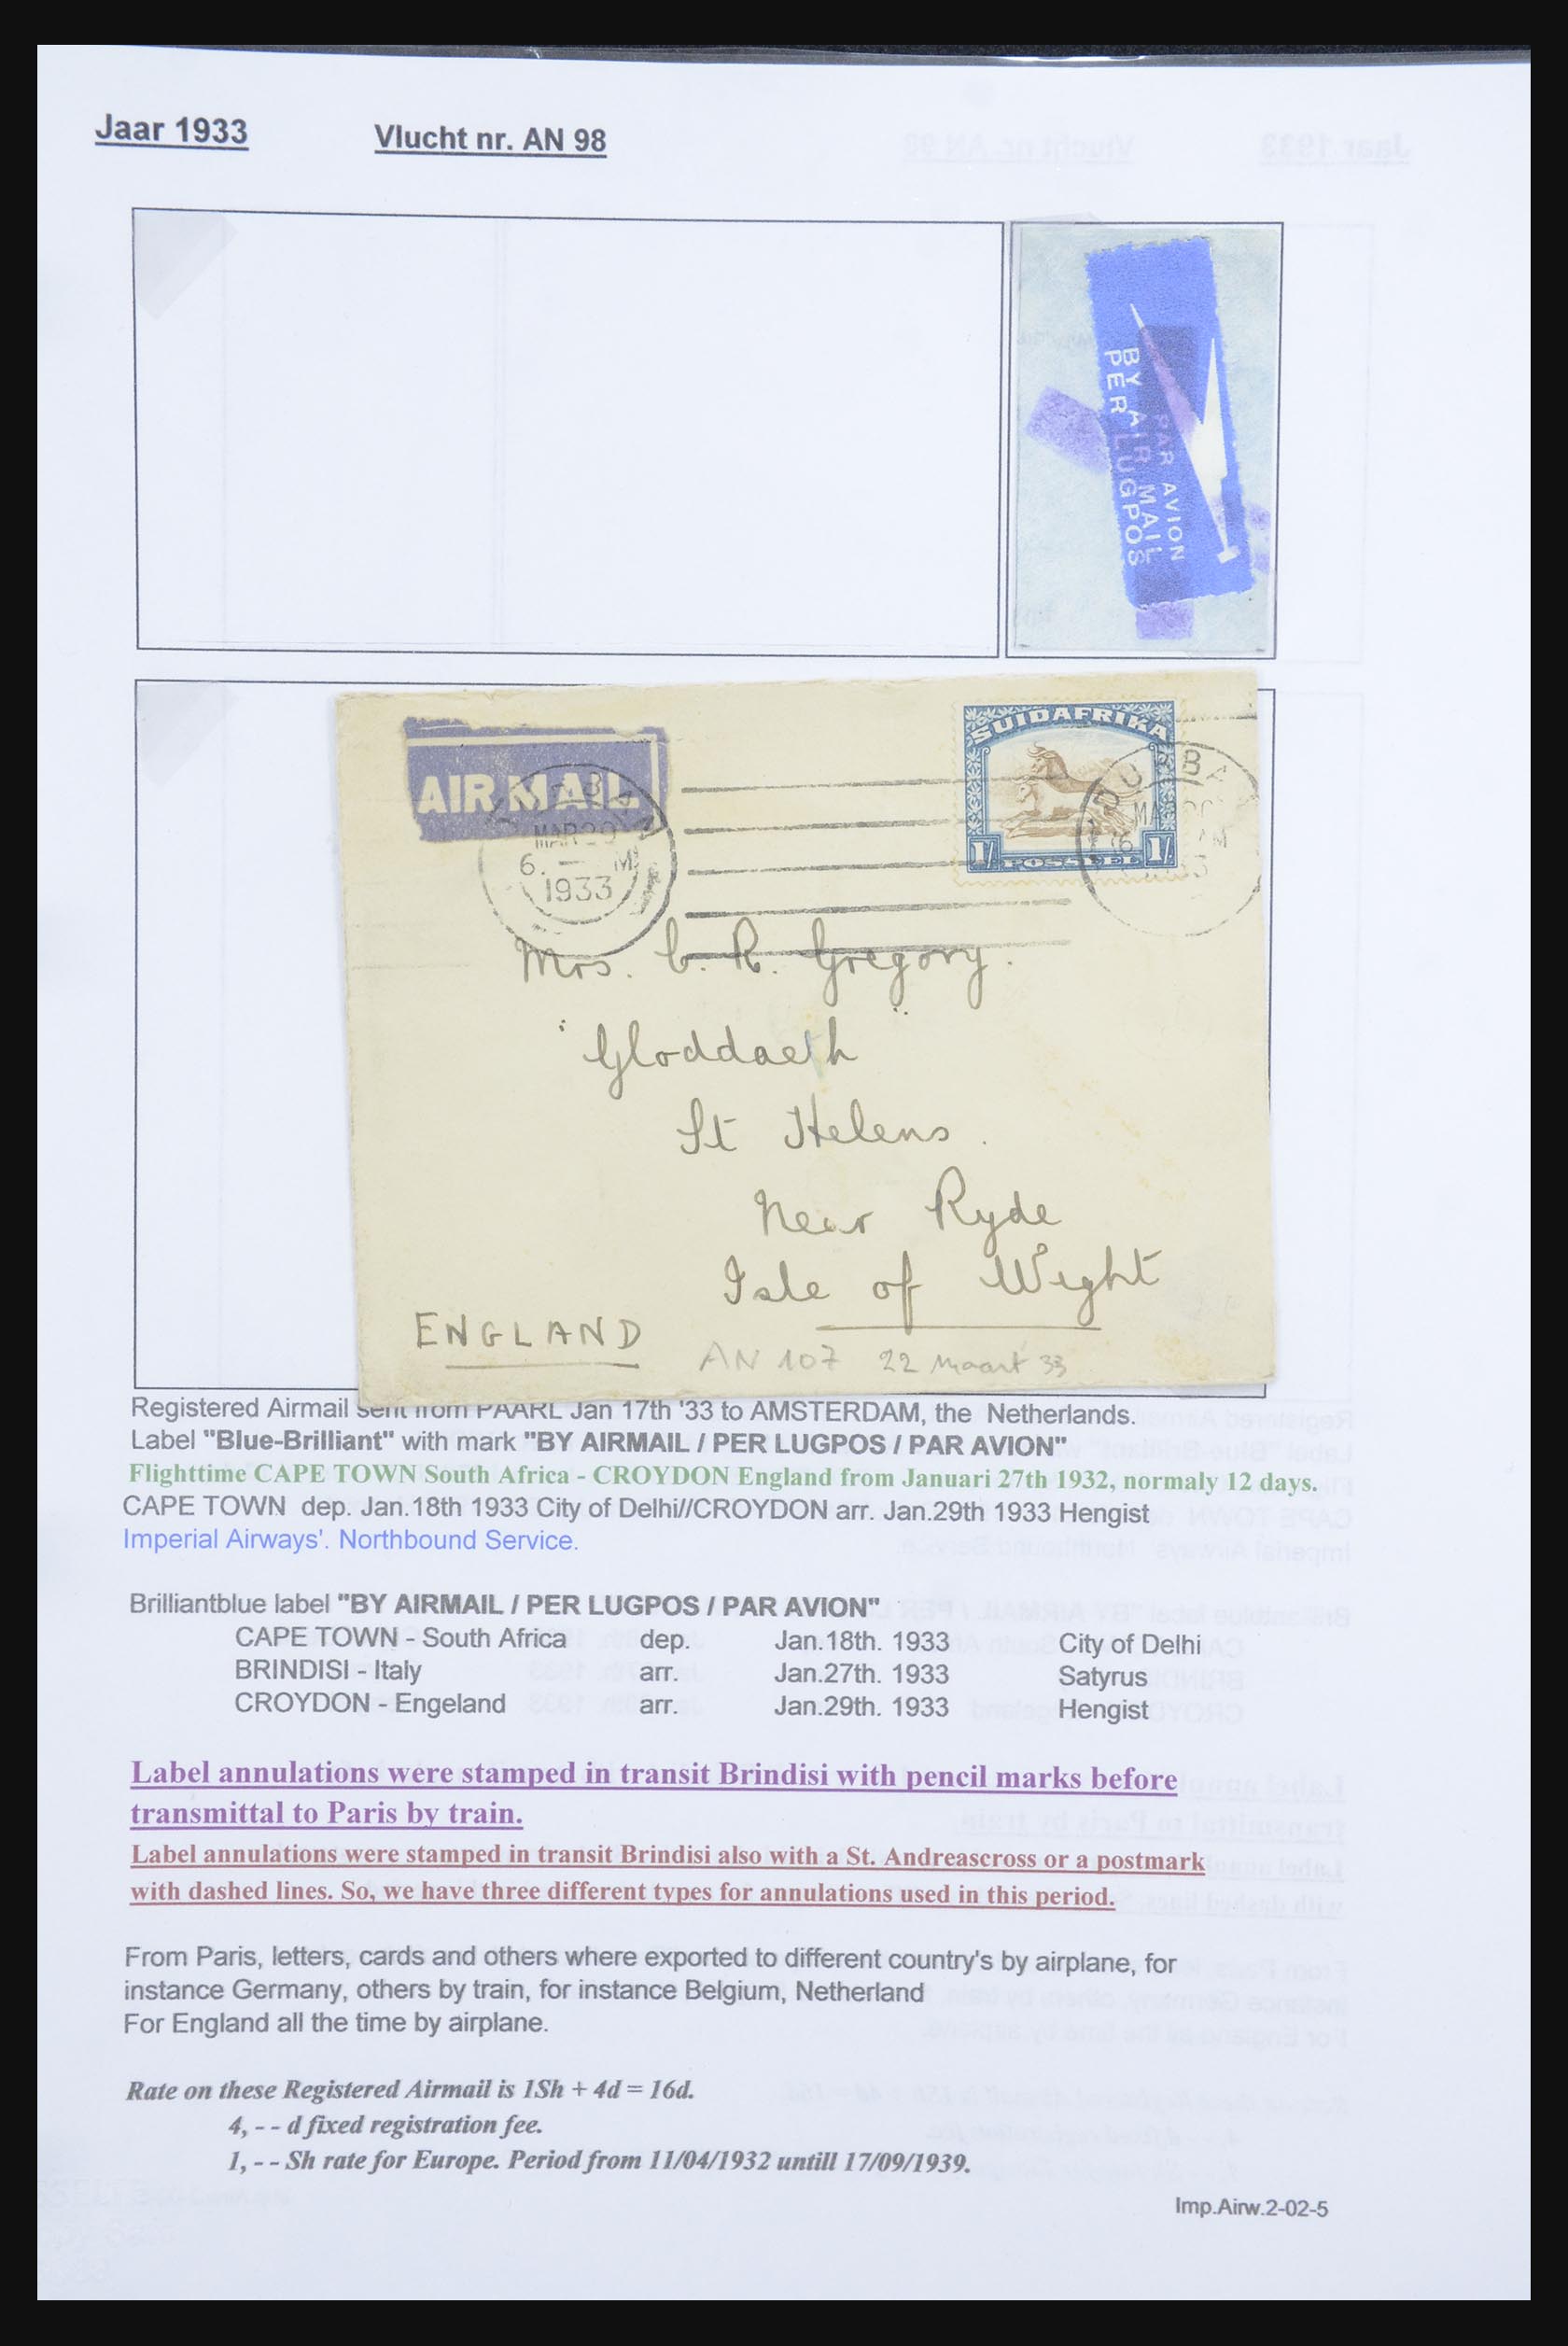 Jaar 1933 Vlucht nr. AN 98
PAR AVION
BY AIR MAIL
PER LUGPOS
AIR MAIL
MAR 20
6. — M
1933
SUIDAFRIKA
1/ POSSEEL 1/
DURBA
Mrs. C. R. Gregory.
"Gloddaeth"
St Helens.
Near Ryde
Isle of Wight
ENGLAND
AN 107 22 Maart 33
Registered Airmail sent from PAARL Jan 17th '33 to AMSTERDAM, the Netherlands.
Label "Blue-Brilliant" with mark "BY AIRMAIL / PER LUGPOS / PAR AVION"
Flighttime CAPE TOWN South Africa - CROYDON England from Januari 27th 1932, normaly 12 days.
CAPE TOWN dep. Jan.18th 1933 City of Delhi//CROYDON arr. Jan.29th 1933 Hengist
Imperial Airways'. Northbound Service.
Brilliantblue label "BY AIRMAIL / PER LUGPOS / PAR AVION"
CAPE TOWN - South Africa dep. Jan.18th. 1933 City of Delhi
BRINDISI - Italy arr. Jan.27th. 1933 Satyrus
CROYDON - Engeland arr. Jan.29th. 1933 Hengist
Label annulations were stamped in transit Brindisi with pencil marks before
transmittal to Paris by train.
Label annulations were stamped in transit Brindisi also with a St. Andreascross or a postmark
with dashed lines. So, we have three different types for annulations used in this period.
From Paris, letters, cards and others where exported to different country's by airplane, for
instance Germany, others by train, for instance Belgium, Netherland
For England all the time by airplane.
Rate on these Registered Airmail is 1Sh + 4d = 16d.
4, - - d fixed registration fee.
1, - - Sh rate for Europe. Period from 11/04/1932 untill 17/09/1939.
Imp.Airw.2-02-5